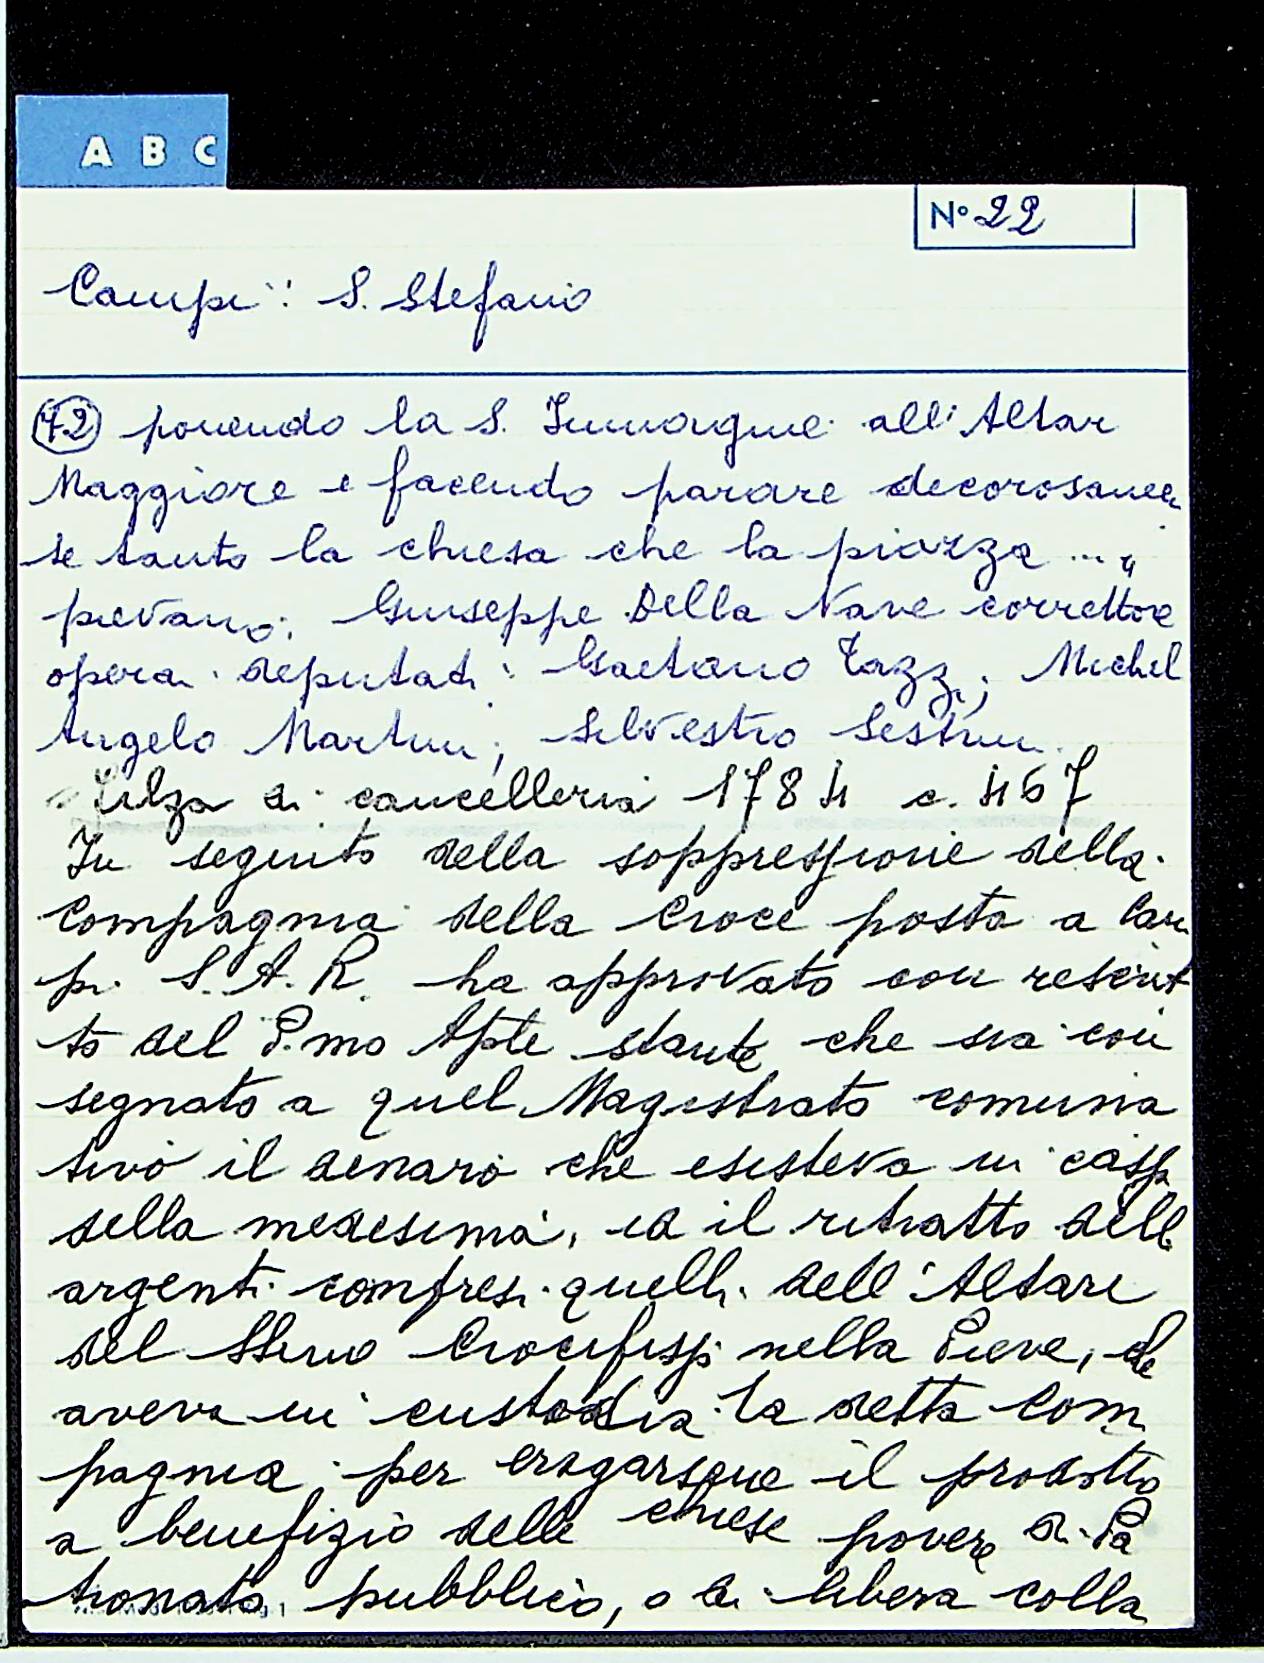 A B C
N° 22
Campi: S. Stefano
(42) ponendo la S. Immagine all'Altar
Maggiore e facendo parare decorosamen
te tanto la chiesa che la piazza ..."
pievano: Giuseppe Della Nave correttore
opera. deputati: Gaetano Tazzi; Michel
Angelo Martini; Silvestro Sestini.
Filza di cancelleria 1784 c. 467
In seguito della soppressione della
Compagnia della Croce posta a Cam
pi S.A.R. ha approvato con rescrit
to del P.mo Aple stante che sia con
segnato a quel Magistrato comunia
tivo il denaro che esisteva in cassa
della medesima, ed il ritratto delli
argenti compresi quelli dell'Altare
del SSmo Crocifisso nella Pieve, che
aveva in custodia la detta Com
pagnia per erogarsene il prodotto
a benefizio delle chiese povere di Pa
tronato pubblico, o di libera colla